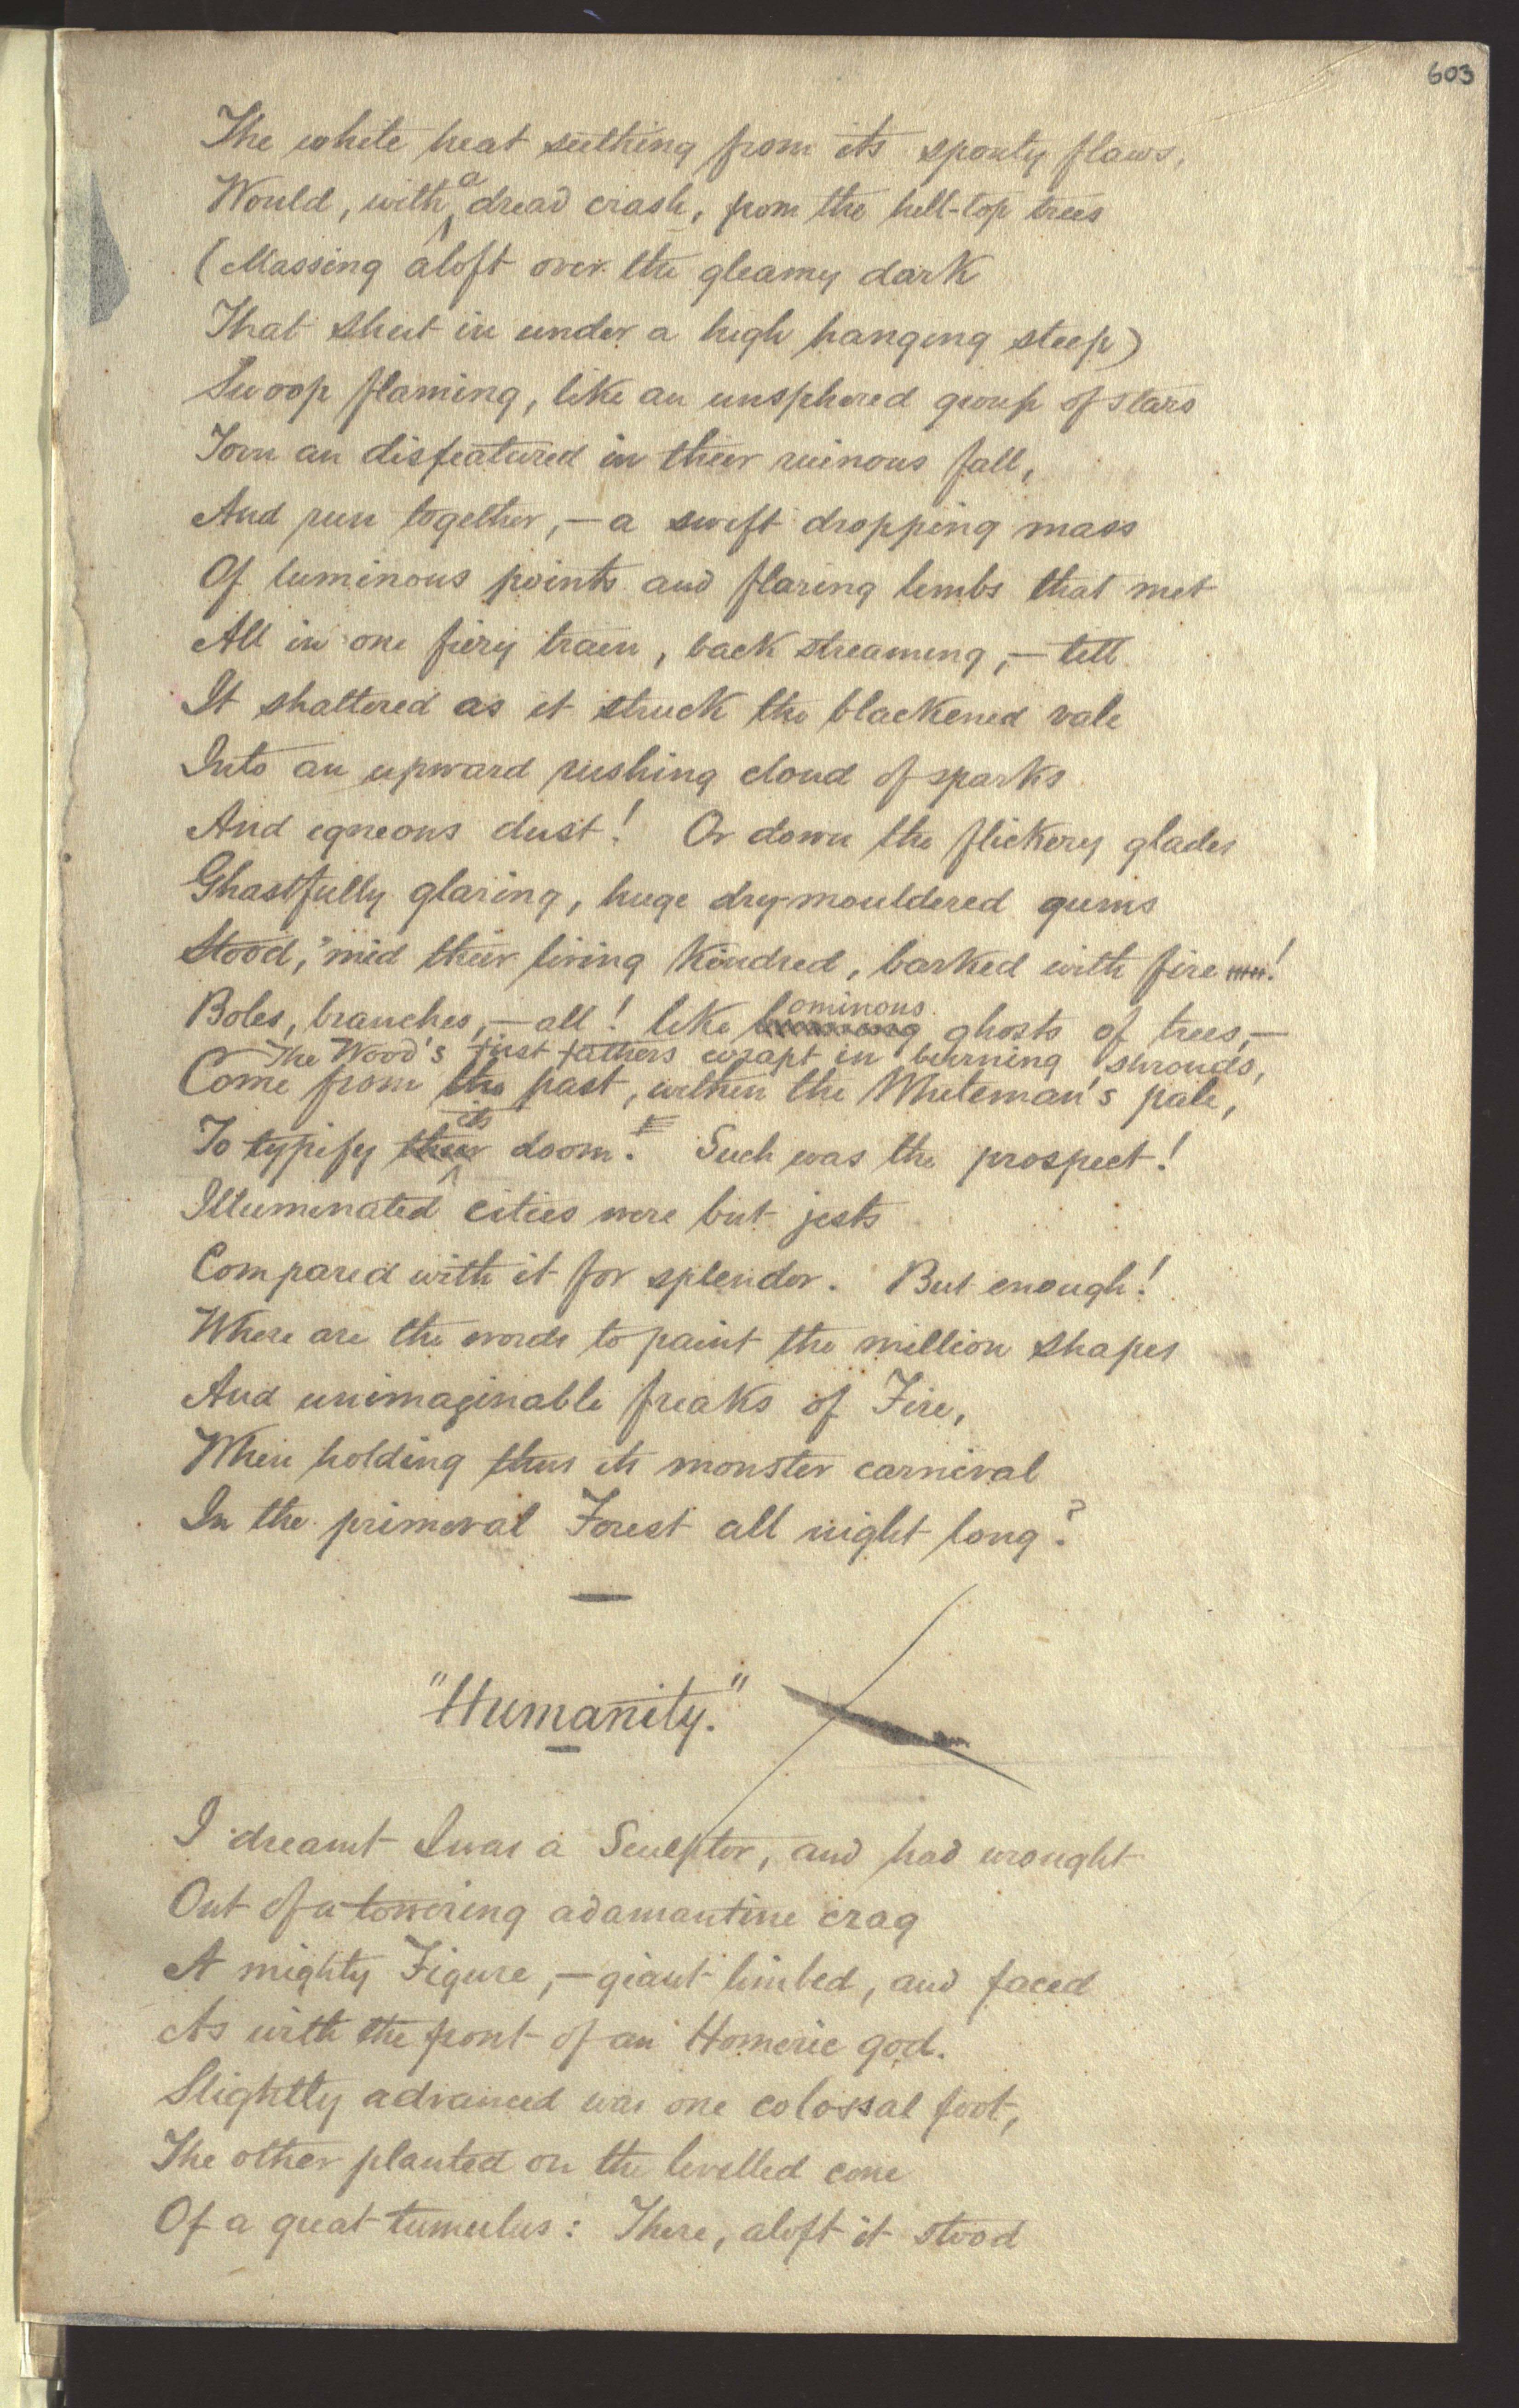 603
The white heat seething from its spouty flaws,
Would, with a dread crash, from the hill-top trees
(Massing aloft over the gleamy dark
That shut in under a high hanging steep)
Swoop flaming, like an unsphered group of stars
Torn an disfeatured in their ruinous fall,
And run together,—a swift dropping mass
Of luminous points and flaring limbs that met
All in one fiery train, back streaming,—till
It shattered as it struck the blackened vale
Into an upward rushing cloud of sparks
And igneous dust! Or down the flickery glades
Ghastfully glaring, huge dry-mouldered gums
Stood, 'mid their living kindred, barked with fire!
Boles, branches,—all! like ominous ghosts of trees,—
The Wood's just fathers wrapt in burning shrouds,
Come from the past, within the Whiteman's pale,
To typify its doom. Such was the prospect!
Illuminated cities were but jests
Compared with it for splendor. But enough!
Where are the words to paint the million shapes
And unimaginable freaks of Fire,
When holding thus its monster carnival
In the primeval Forest all night long?
"Humanity."
I dreamt I was a Sculptor, and had wrought
Out of a towering adamantine crag
A mighty Figure,—giant limbed, and faced
As with the front of an Homeric god.
Slightly advanced was one colossal foot,
The other planted on the levelled cone
Of a great tumulus: There, aloft it stood